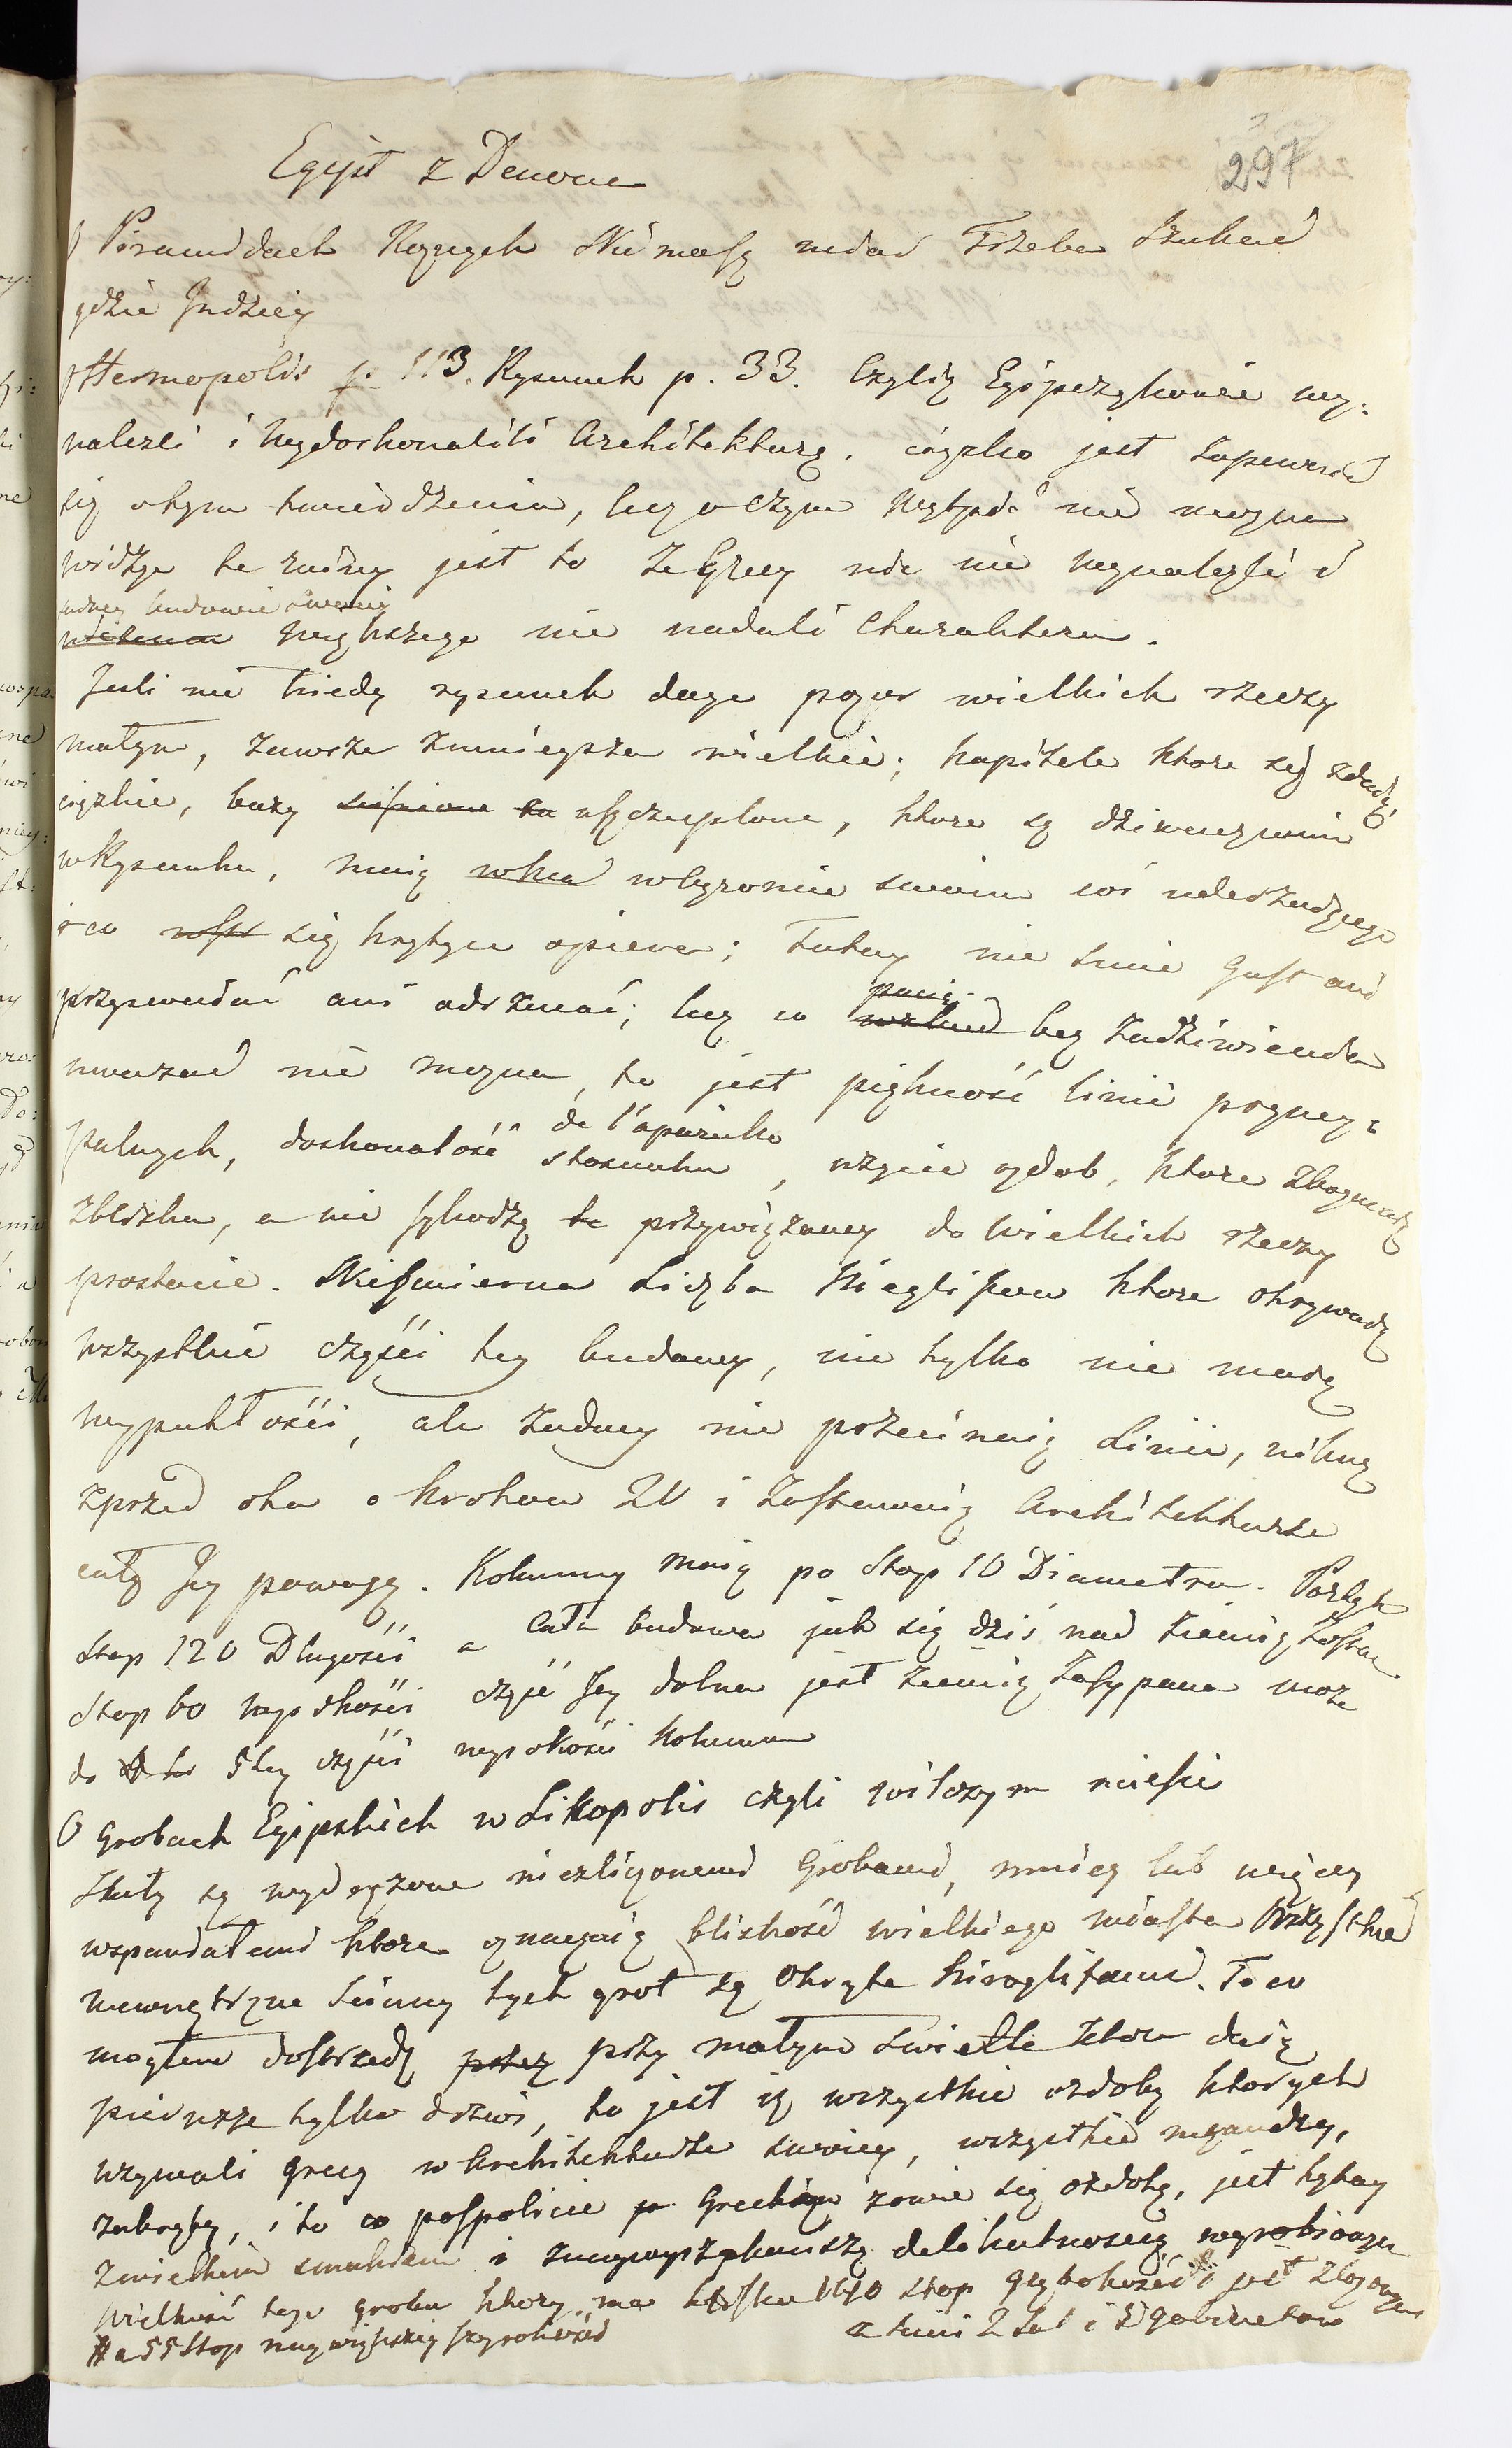 297
Egipt z Denona
O Piramidach Rycych Nie masz nedac Trzeba Szukać
gdzie Indziey
Hermopolis p. 113. Rysunek p. 33. Czyliż Egipczykowie wy:
nalezli i wydoskonalili Architekturę. ciężko jest zapewnić
się o tym twierdzeniu, lecz o czym wątpić nie mozna
jest to że Grecy nic nie wynalezli i
zadney budowie swoiey
wyższego nie nadali Charakteru.
Jesli nie kiedy rysunek daye pozor wielkich rzeczy
małym, zawsze zmnieysza wielkie; kapitele ktore się zdadzą
ciężkie, bazy uszczuplone, ktore są dziwacznemi
w Rysunku, maią w ogromie swoim coś uderzaiącego
i co się krytyce opiera; Tutay nie smie Gust ani
przyswaiać ani odrzucać; lecz co bez Zadziwienia
uwazać nie mozna, to jest piękność linii pryncy:
palnych, doskonałość de l'apareil
stosunku, uzycie ozdob, ktore zbogacaią
zbliska, a nie szkodzą przywiązaney do wielkich rzeczy
prostocie. Niezmierna Liczba Hieglifow ktore okrywaią
wszystkie części tey budowy, nie tylko nie maią
wypukłości, ale zadney nie przecinaią Linii, nikną
zprzed oka o krokow 20 i Zostawuią Architekturze
całą Jey powagę. Kolumny maią po Stop 10 Diametra. Portyk
Stop 120 Długości a Cała budowa jak się dziś nad ziemią
Stop 60 wysokości część Jey dolna jest ziemią Zasypana może
do 5tey części wysokości Kolumn
O grobach Egipskich w Likopolis czyli wilczym mieście
Skały są wydrązone niezliczonemi Grobami, mniey lub więcey
wspaniałemi ktore oznaczaią bliskość wielkiego miasta Wszystkie
wewnętrzne sciany tych grot są Okryte hiroglifami. To co
mogłem dostrzedz przy małym świetle ktore daią
pierwsze tylko drzwi, to jest iż wszystkie ozdoby ktorych
uzywali Grecy w Architekturze swoiey, wszystkie meandry,
zakręty, i to co pospolicie Grecką zowie się ozdobą, jest tutay
z wielkim smakiem i delikatnoscią wyrobionym
Wielkość tego grobu ktory ma stop głębokości jest złozonym
a 55 Stop naywiększey szyrokości z 2 Sal i gabinetow